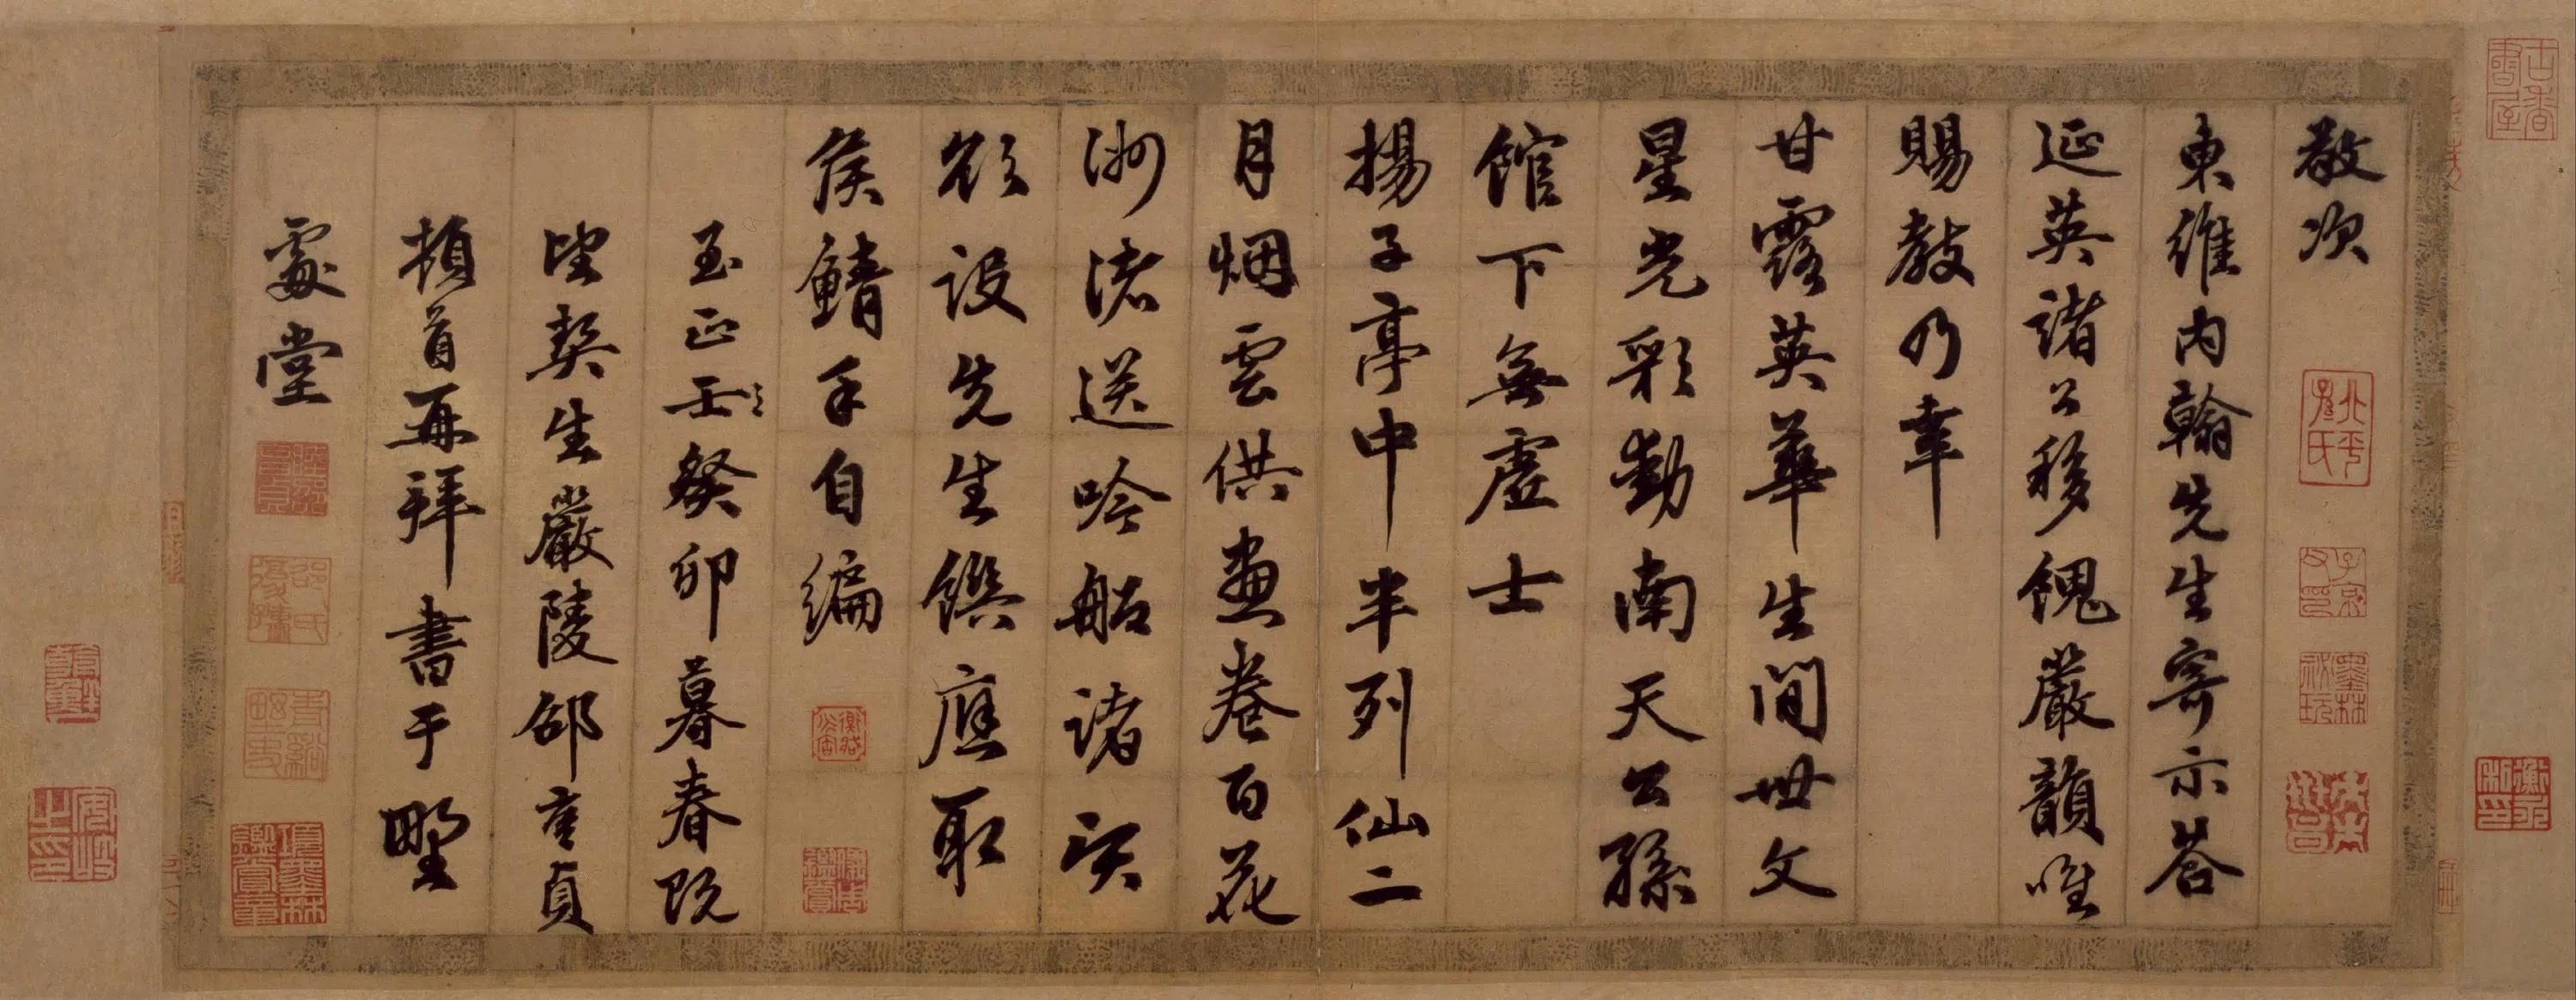 敬次
東維內翰先生寄示荅
延英諸公移餽嚴韻唯
賜教乃幸
甘露英華生間世文
星光彩動南天公孫
館下無虛士
揚子亭中半列仙二
月烟雲供畫卷百花
洲渚送吟船諸
欲設先生饌應取
侯鯖手自編
至正壬癸卯暮春既
望契生嚴陵邵亨貞
頓首再拜書于野
處堂